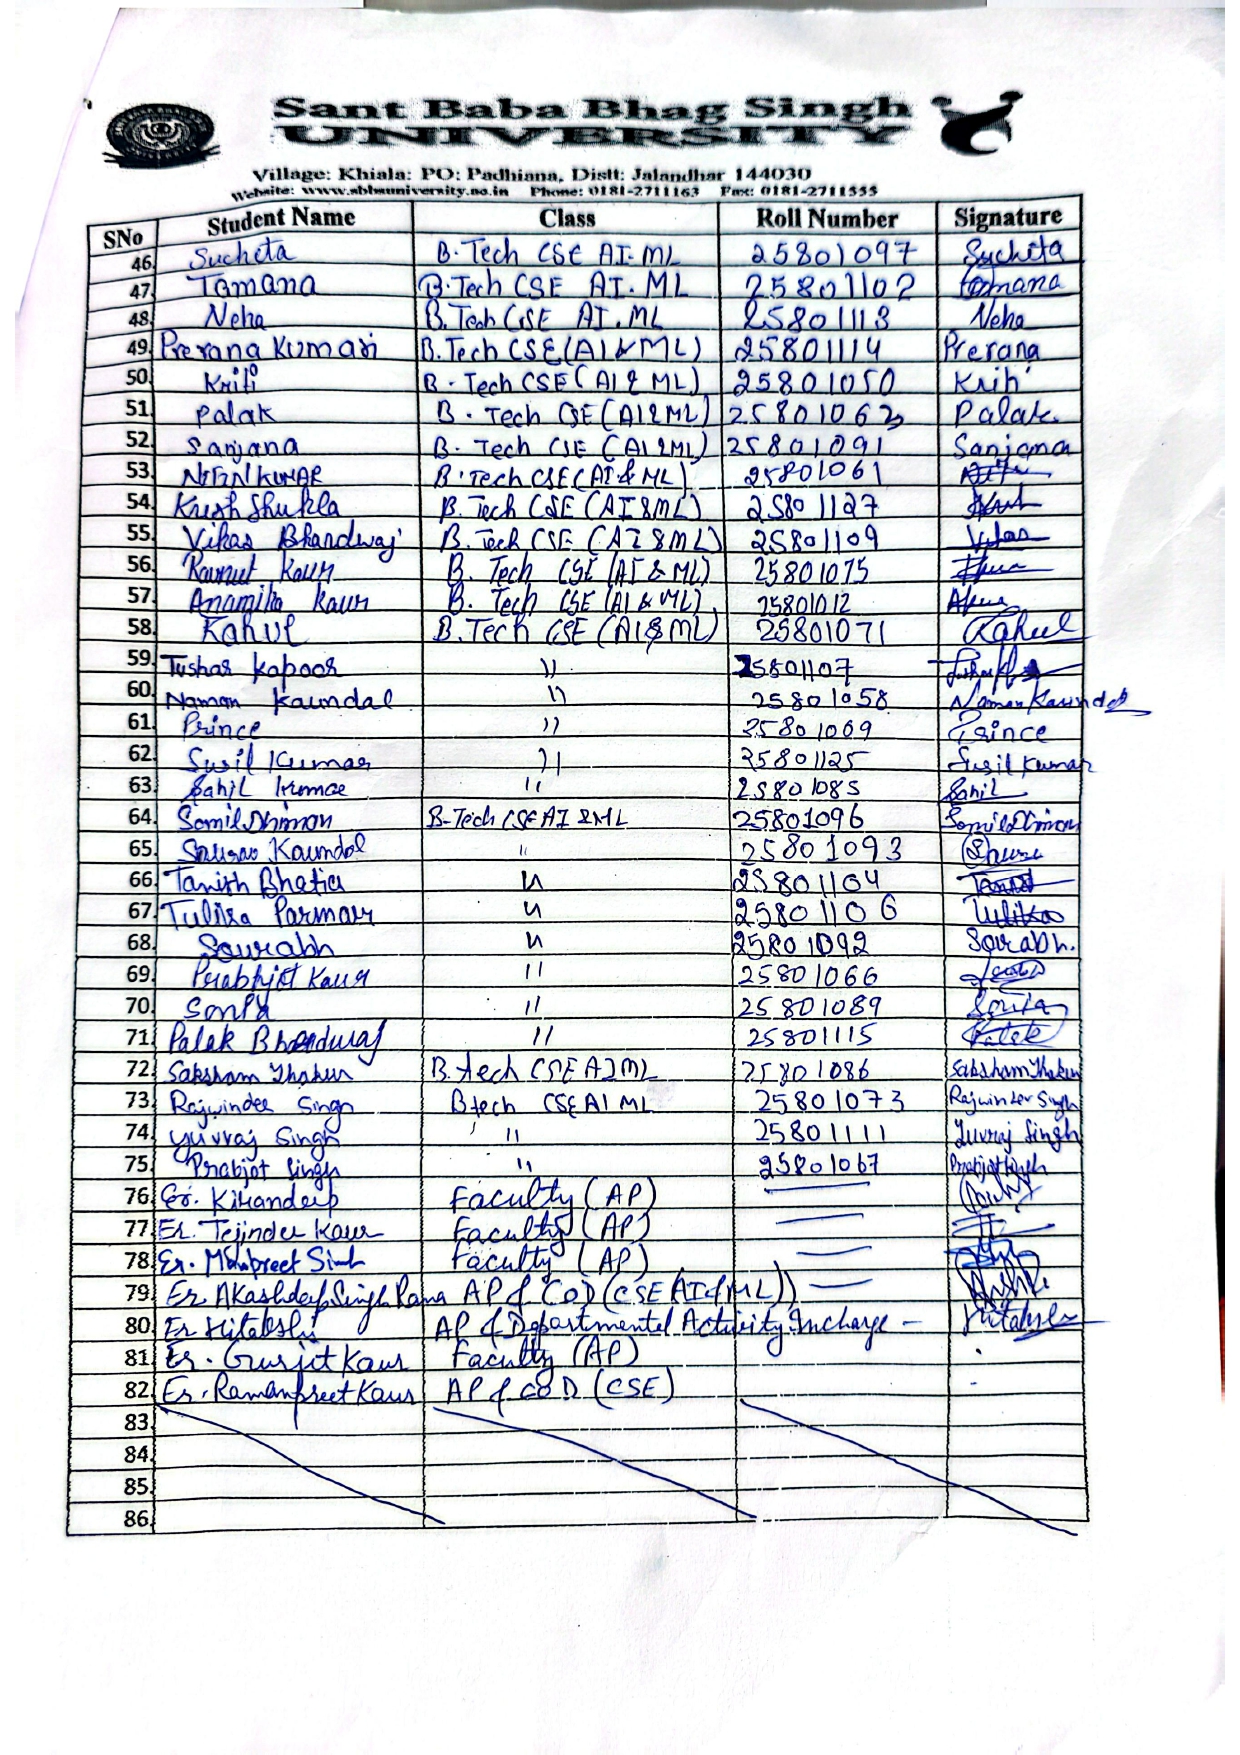 Sant Baba Bhag Singh
UNIVERSITY
Village: Khiala: PO: Padhiana, Distt: Jalandhar 144030
Website: www.sbbsuniversity.ac.in Phone: 0181-2711163 Fax: 0181-2711555
SNo Student Name Class Roll Number Signature
46. Sucheta B. Tech CSE AI. ML 25801097 Sucheta
47. Tamana B.Tech CSE AI. ML 25801102 tamana
48. Neha B.Tech CSE AI. ML 25801113 Neha
49. Prerana Kumari B.Tech CSE(AI & ML) 25801114 Prerana
50. Kriti B. Tech CSE (AI & ML) 25801050 Kriti
51. Palak B. Tech CSE (AI & ML) 25801063 Palak
52. Sanjana B. Tech CSE (AI & ML) 25801091 Sanjana
53. NITIN KUMAR B. Tech CSE (AI & ML) 25801061
54. Krish Shukla B. Tech CSE (AI & ML) 25801127
55. Vikas Bhardwaj B. Tech CSE (AI & ML) 25801109 Vikas
56. Kaur B. Tech CSE (AI & ML) 25801075
57. Anamika Kaur B. Tech CSE (AI & ML) 25801012
58. Rahul B.Tech CSE (AI & ML) 25801071 Rahul
59. Tushar Kapoor " 25801107
60. Naman Kaundal " 25801058 Naman Kaundal
61. Prince " 25801069 Prince
62. Susil Kumar " 25801125 Susil Kumar
63. Sahil Kumar " 25801085 Sahil
64. Somil Dhiman B-Tech CSE AI & ML 25801096 Somil Dhiman
65. Sourav Kaundal " 25801093
66. Tanish Bhatia " 25801104
67. Tulika Parmar " 25801106 Tulika
68. Sourabh " 25801092 Sourabh.
69. Prabhjot Kaur " 25801066
70. Sonia " 25801089 Sonia
71. Palak Bhardwaj " 25801115 Palak
72. Saksham Thakur B.tech CSE AI ML 25801086 Saksham Thakur
73. Rajwinder Singh Btech CSE AI ML 25801073 Rajwinder Singh
74. Yuvraj Singh " 25801111 Yuvraj Singh
75. Prabjot Singh " 25801067 Prabjot Singh
76. Er. Kirandeep Faculty (AP)
77. Er. Tejinder Kaur Faculty (AP)
78. Er. Manpreet Singh Faculty (AP)
79. Er. Akashdeep Singh Rana AP & COD (CSE AI & ML)
80. Er Hitakshi AP & Departmental Activity Incharge - Hitakshi
81. Er. Gurjit Kaur Faculty (AP)
82. Er. Ramanpreet Kaur AP & COD (CSE)
83.
84.
85.
86.